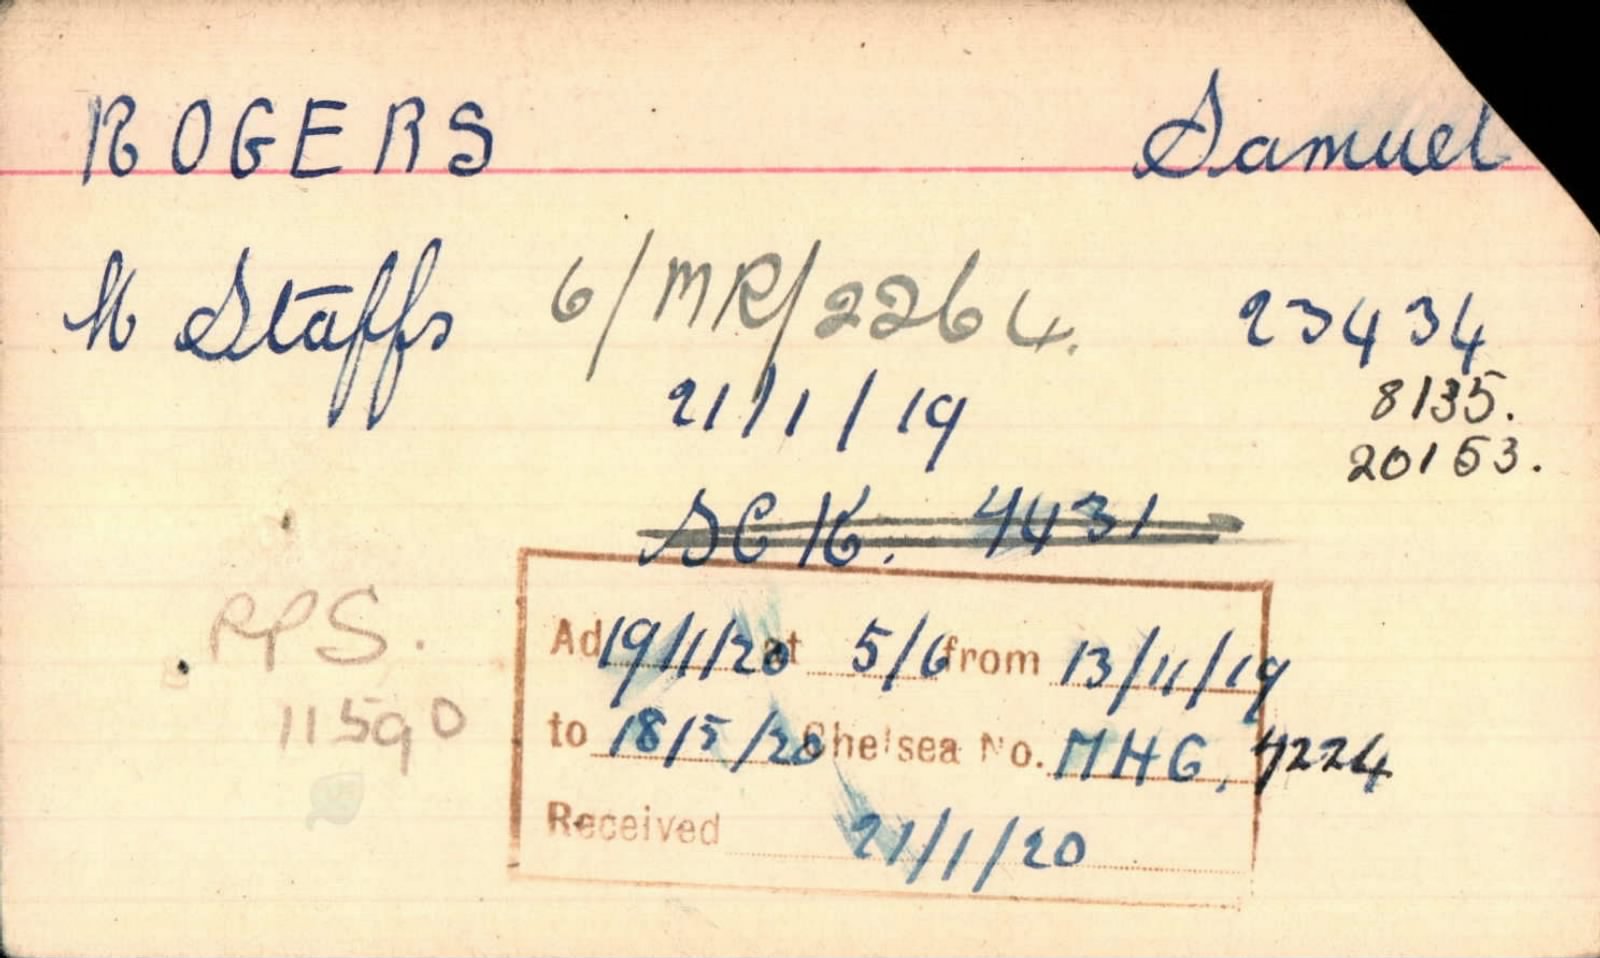 ROGERS Samuel
N Staffs 6/MR/2264. 23434
21/1/19 8135.
20153.
SCK. 4431
Ad 19/1/20 at 5/6 from 13/11/19
to 18/5/20 Chelsea No. MHG, 4224
Received 21/1/20
PPS.
11590